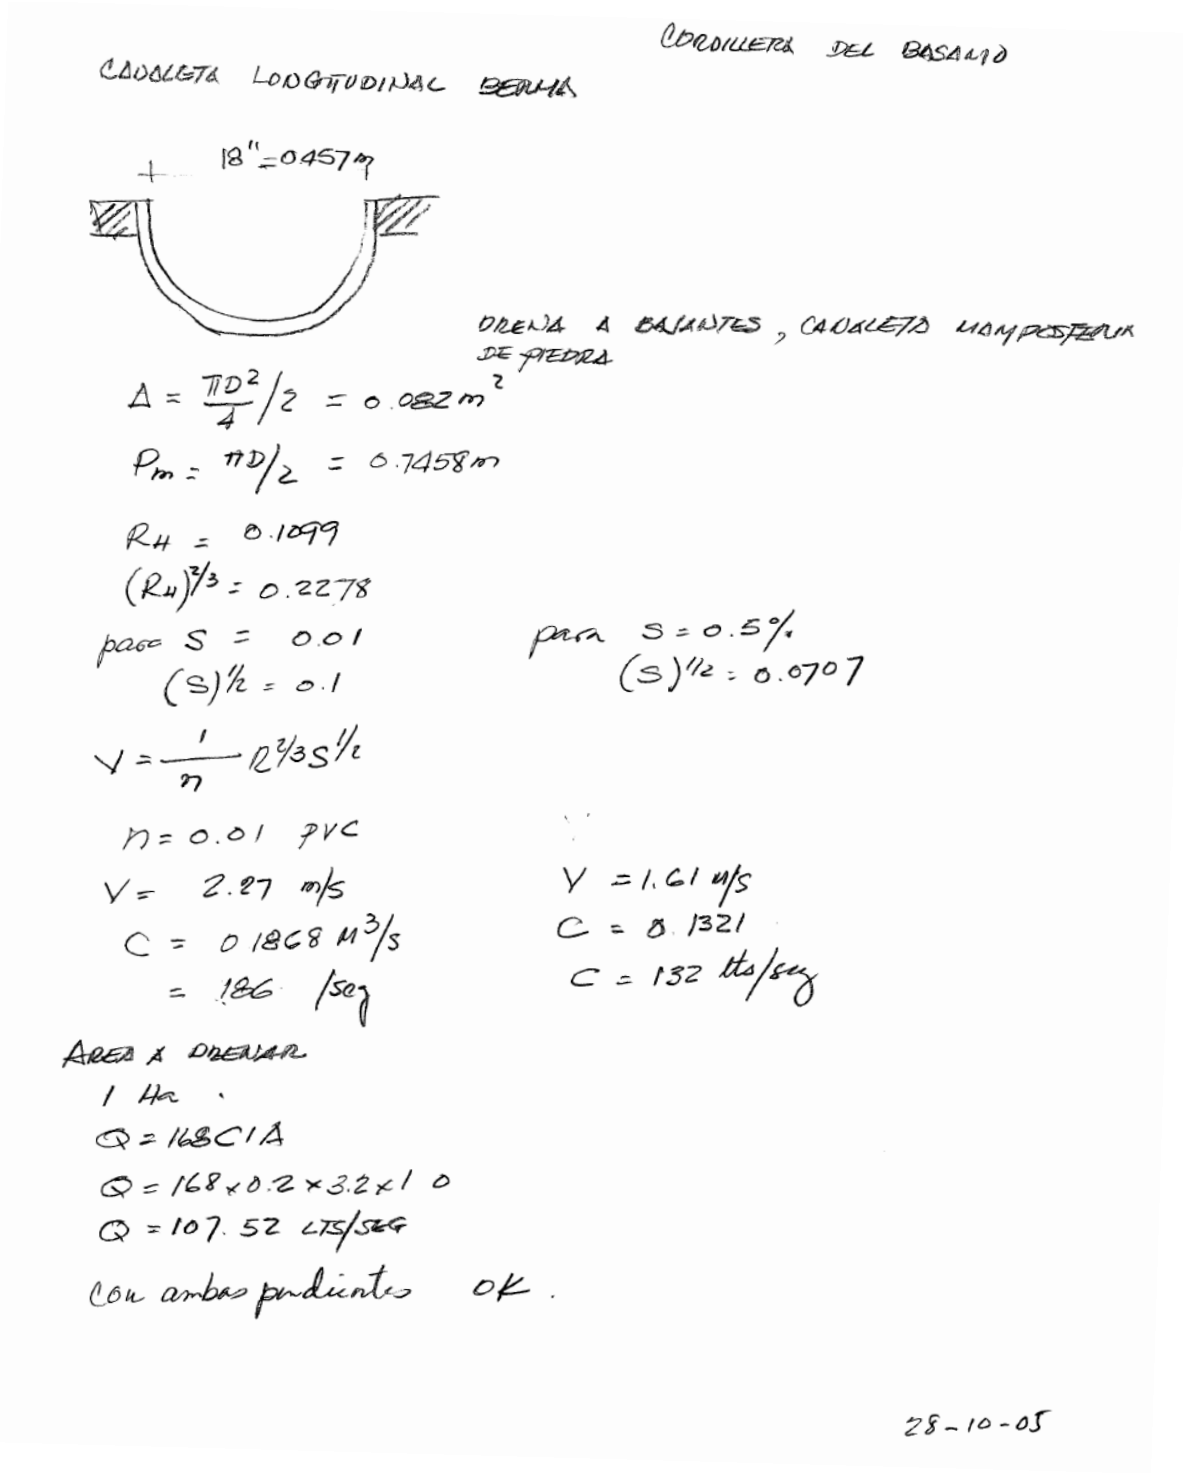 CORDILLERA DEL BALSAMO
CANALETA LONGITUDINAL BERMA
18"=0.457m
DRENA A BAJANTES, CANALETA MAMPOSTERIA
DE PIEDRA
A = πD²/4 /2 = 0.082 m²
Pm = πD/2 = 0.7458m
RH = 0.1099
(RH)^2/3 = 0.2278
para S = 0.01
(S)^1/2 = 0.1
para S = 0.5%
(S)^1/2 = 0.0707
V = 1/n R^2/3 S^1/2
n = 0.01 PVC
V = 2.27 m/s
C = 0.1868 M³/s
= 186 /seg
V = 1.61 M/S
C = 0.1321
C = 132 lts/seg
AREA A DRENAR
1 Ha.
Q = 168CIA
Q = 168 x 0.2 x 3.2 x 1.0
Q = 107.52 LTS/SEG
Con ambas pendientes OK.
28-10-05